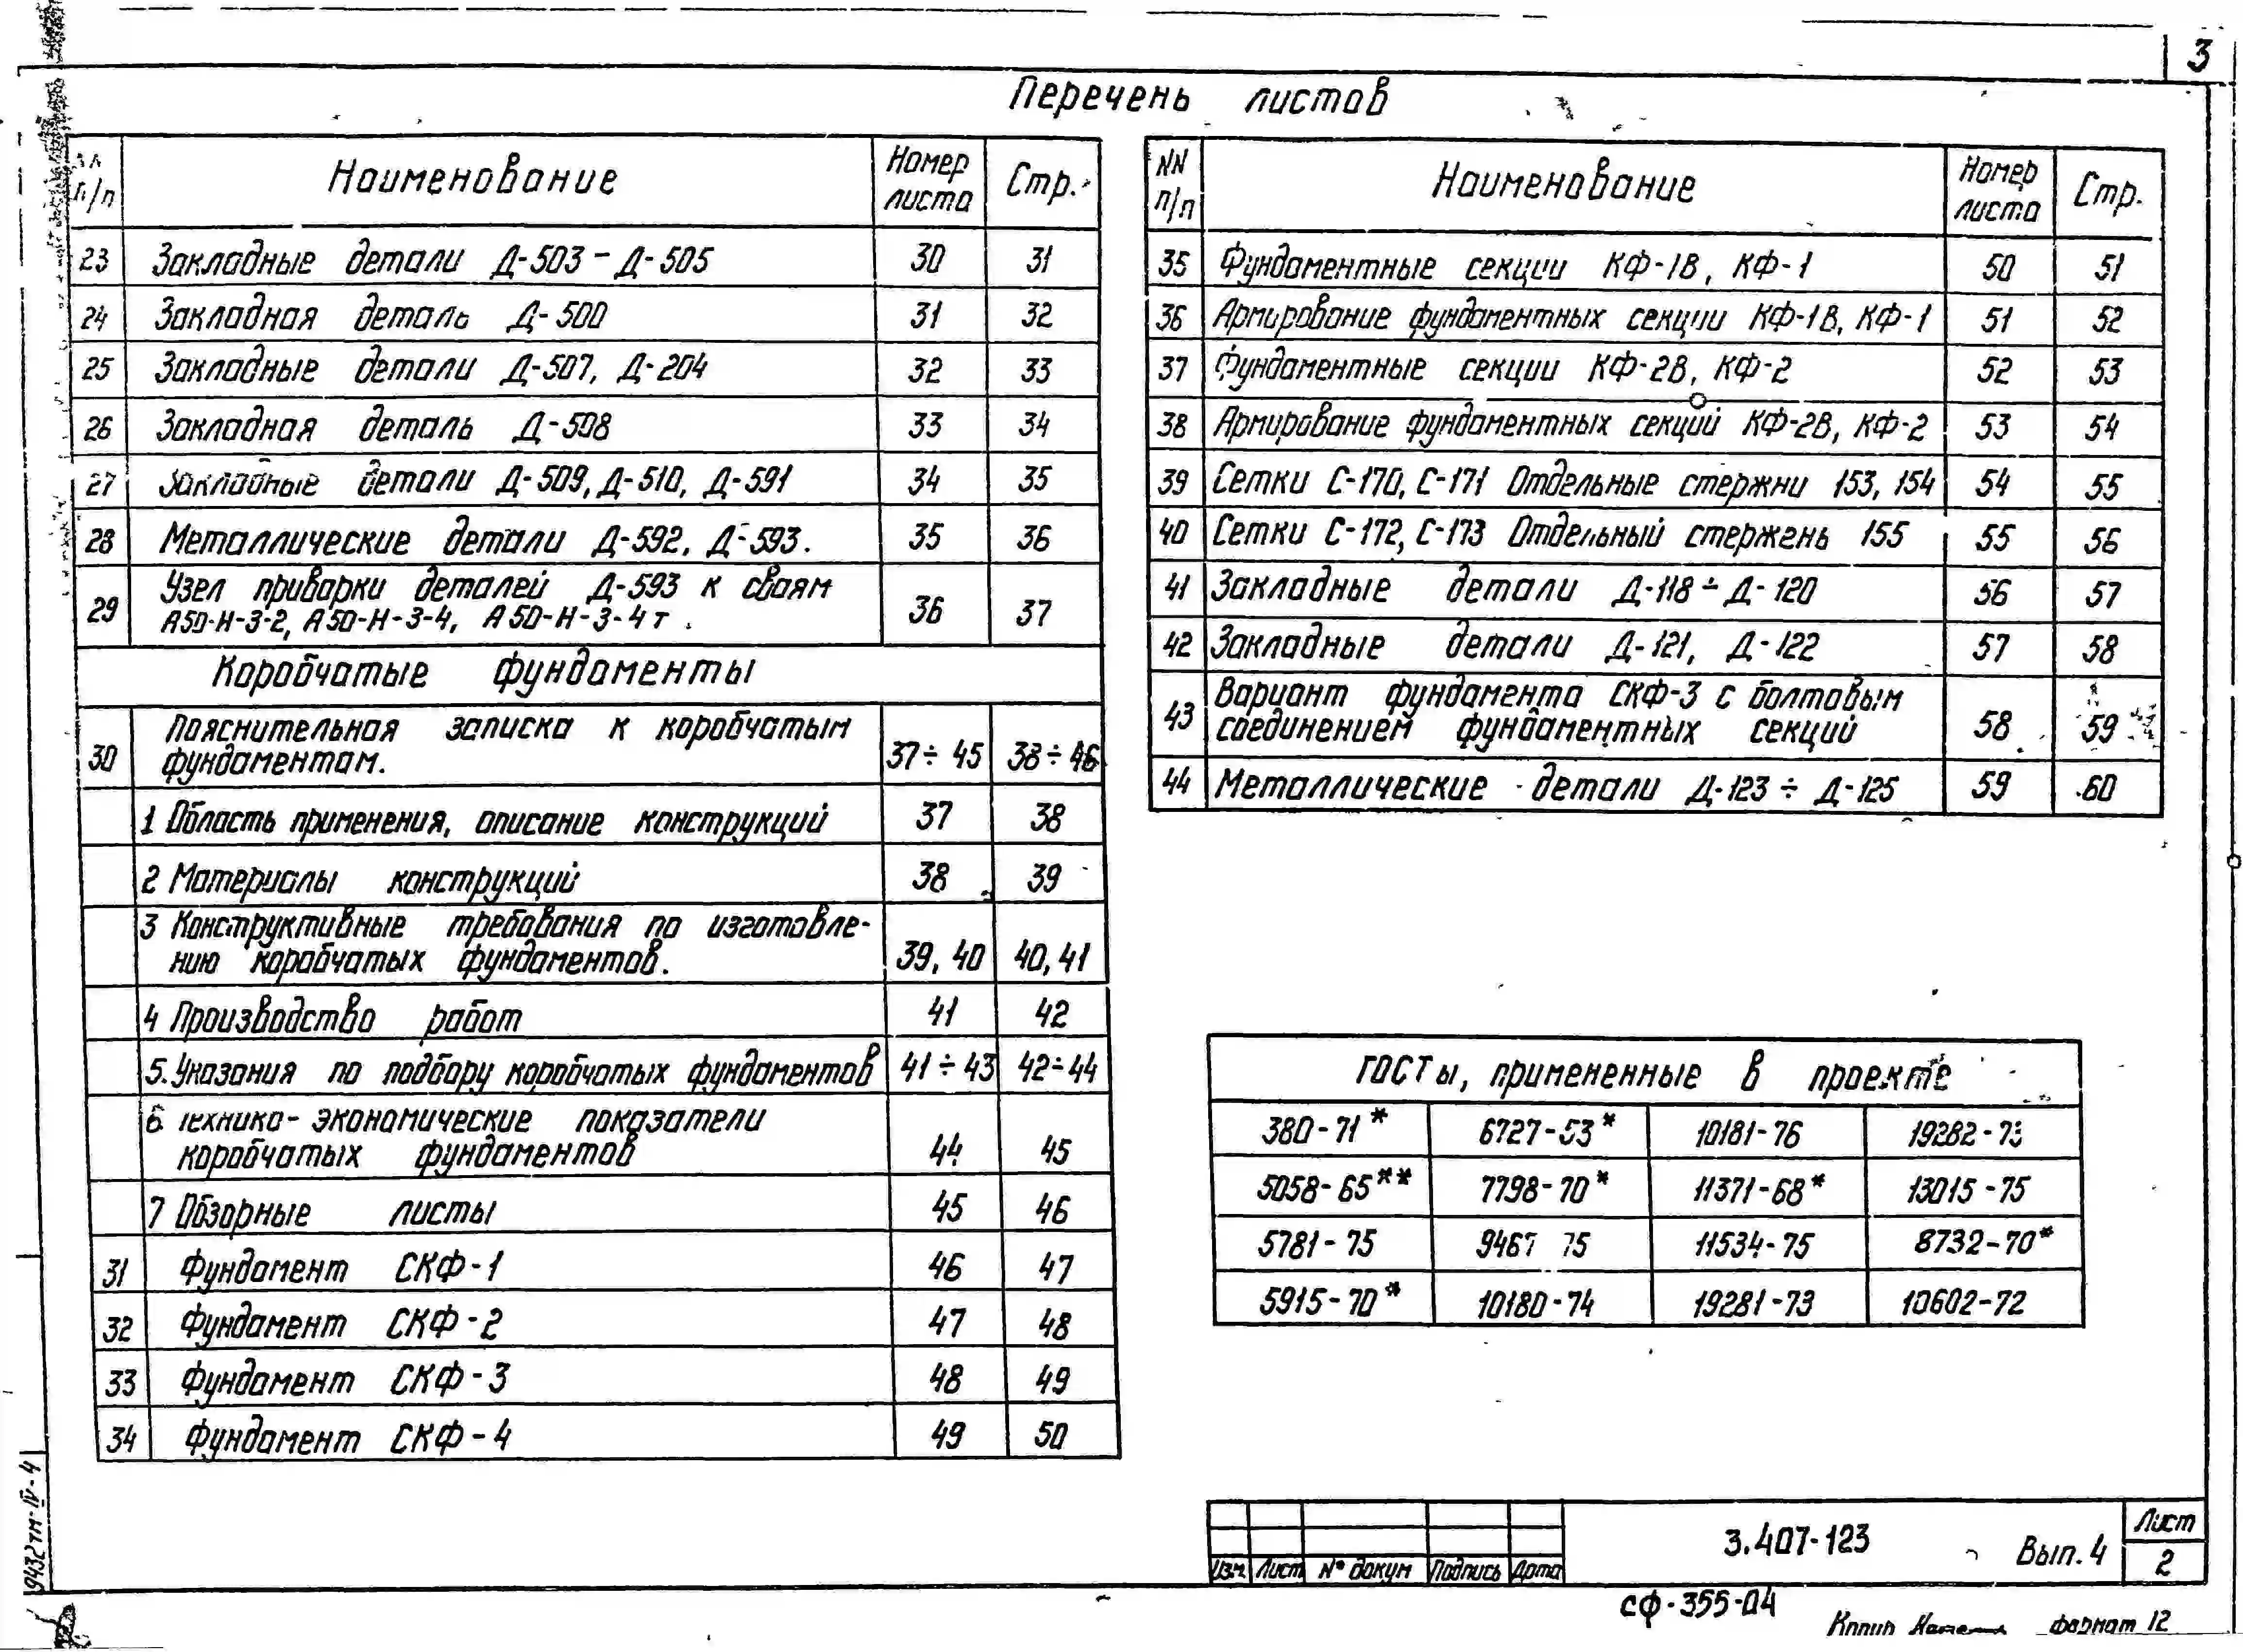 3
Перечень листов
п/п Наименование Номер листа Стр.
23 Закладные детали Д-503 - Д-505 30 31
24 Закладная деталь Д-500 31 32
25 Закладные детали Д-507, Д-204 32 33
26 Закладная деталь Д-508 33 34
27 Закладные детали Д-509, Д-510, Д-591 34 35
28 Металлические детали Д-592, Д-593. 35 36
29 Узел приварки деталей Д-593 к сваям
А50-Н-3-2, А50-Н-3-4, А50-Н-3-4т. 36 37
Коробчатые фундаменты
30 Пояснительная записка к коробчатым
фундаментам. 37÷45 38÷46
1 Область применения, описание конструкций 37 38
2 Материалы конструкций 38 39
3 Конструктивные требования по изготовле-
нию коробчатых фундаментов. 39, 40 40, 41
4 Производство работ 41 42
5. Указания по подбору коробчатых фундаментов 41÷43 42÷44
6 Технико-экономические показатели
коробчатых фундаментов 44 45
7 Обзорные листы 45 46
31 Фундамент СКФ-1 46 47
32 Фундамент СКФ-2 47 48
33 Фундамент СКФ-3 48 49
34 Фундамент СКФ-4 49 50
NN п/п Наименование Номер листа Стр.
35 Фундаментные секции КФ-1В, КФ-1 50 51
36 Армирование фундаментных секции КФ-1В, КФ-1 51 52
37 Фундаментные секции КФ-2В, КФ-2 52 53
38 Армирование фундаментных секций КФ-2В, КФ-2 53 54
39 Сетки С-170, С-171 Отдельные стержни 153, 154 54 55
40 Сетки С-172, С-173 Отдельный стержень 155 55 56
41 Закладные детали Д-118÷Д-120 56 57
42 Закладные детали Д-121, Д-122 57 58
43 Вариант фундамента СКФ-3 с болтовым
соединением фундаментных секций 58 59
44 Металлические детали Д-123÷Д-125 59 60
ГОСТы, примененные в проекте
380-71* 6727-53* 10181-76 19282-73
5058-65** 7798-70* 11371-68* 13015-75
5781-75 9467 75 11534-75 8732-70*
5915-70* 10180-74 19281-73 10602-72
Изм. Лист N° докум Подпись Дата
3.407-123 Вып. 4
Лист
2
СФ-355-04
Копир формат 12
9432тм-IV-4